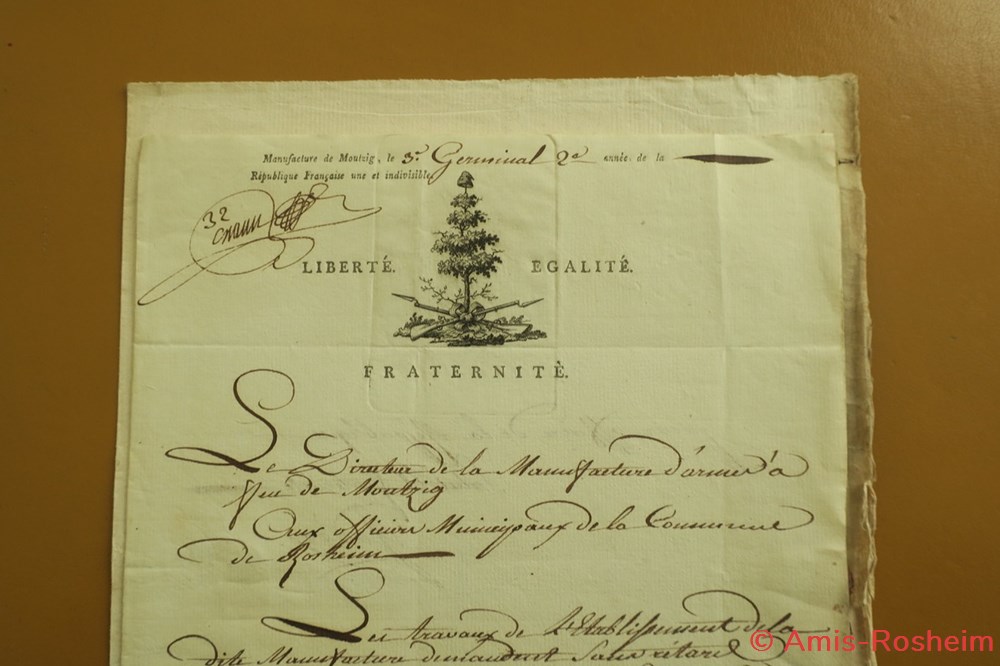 Manufacture de Moutzig, le 3e. Germinal 2e année de la
République Française une et indivisible
32
LIBERTÉ. EGALITÉ.
FRATERNITÉ.
Le Directeur de la Manufacture d'armes à
feu de Moutzig
Aux officiers Municipaux de la Commune
de Rosheim
Les travaux de l'Etablissement de la
dite Manufacture demandent sans retard
© Amis-Rosheim